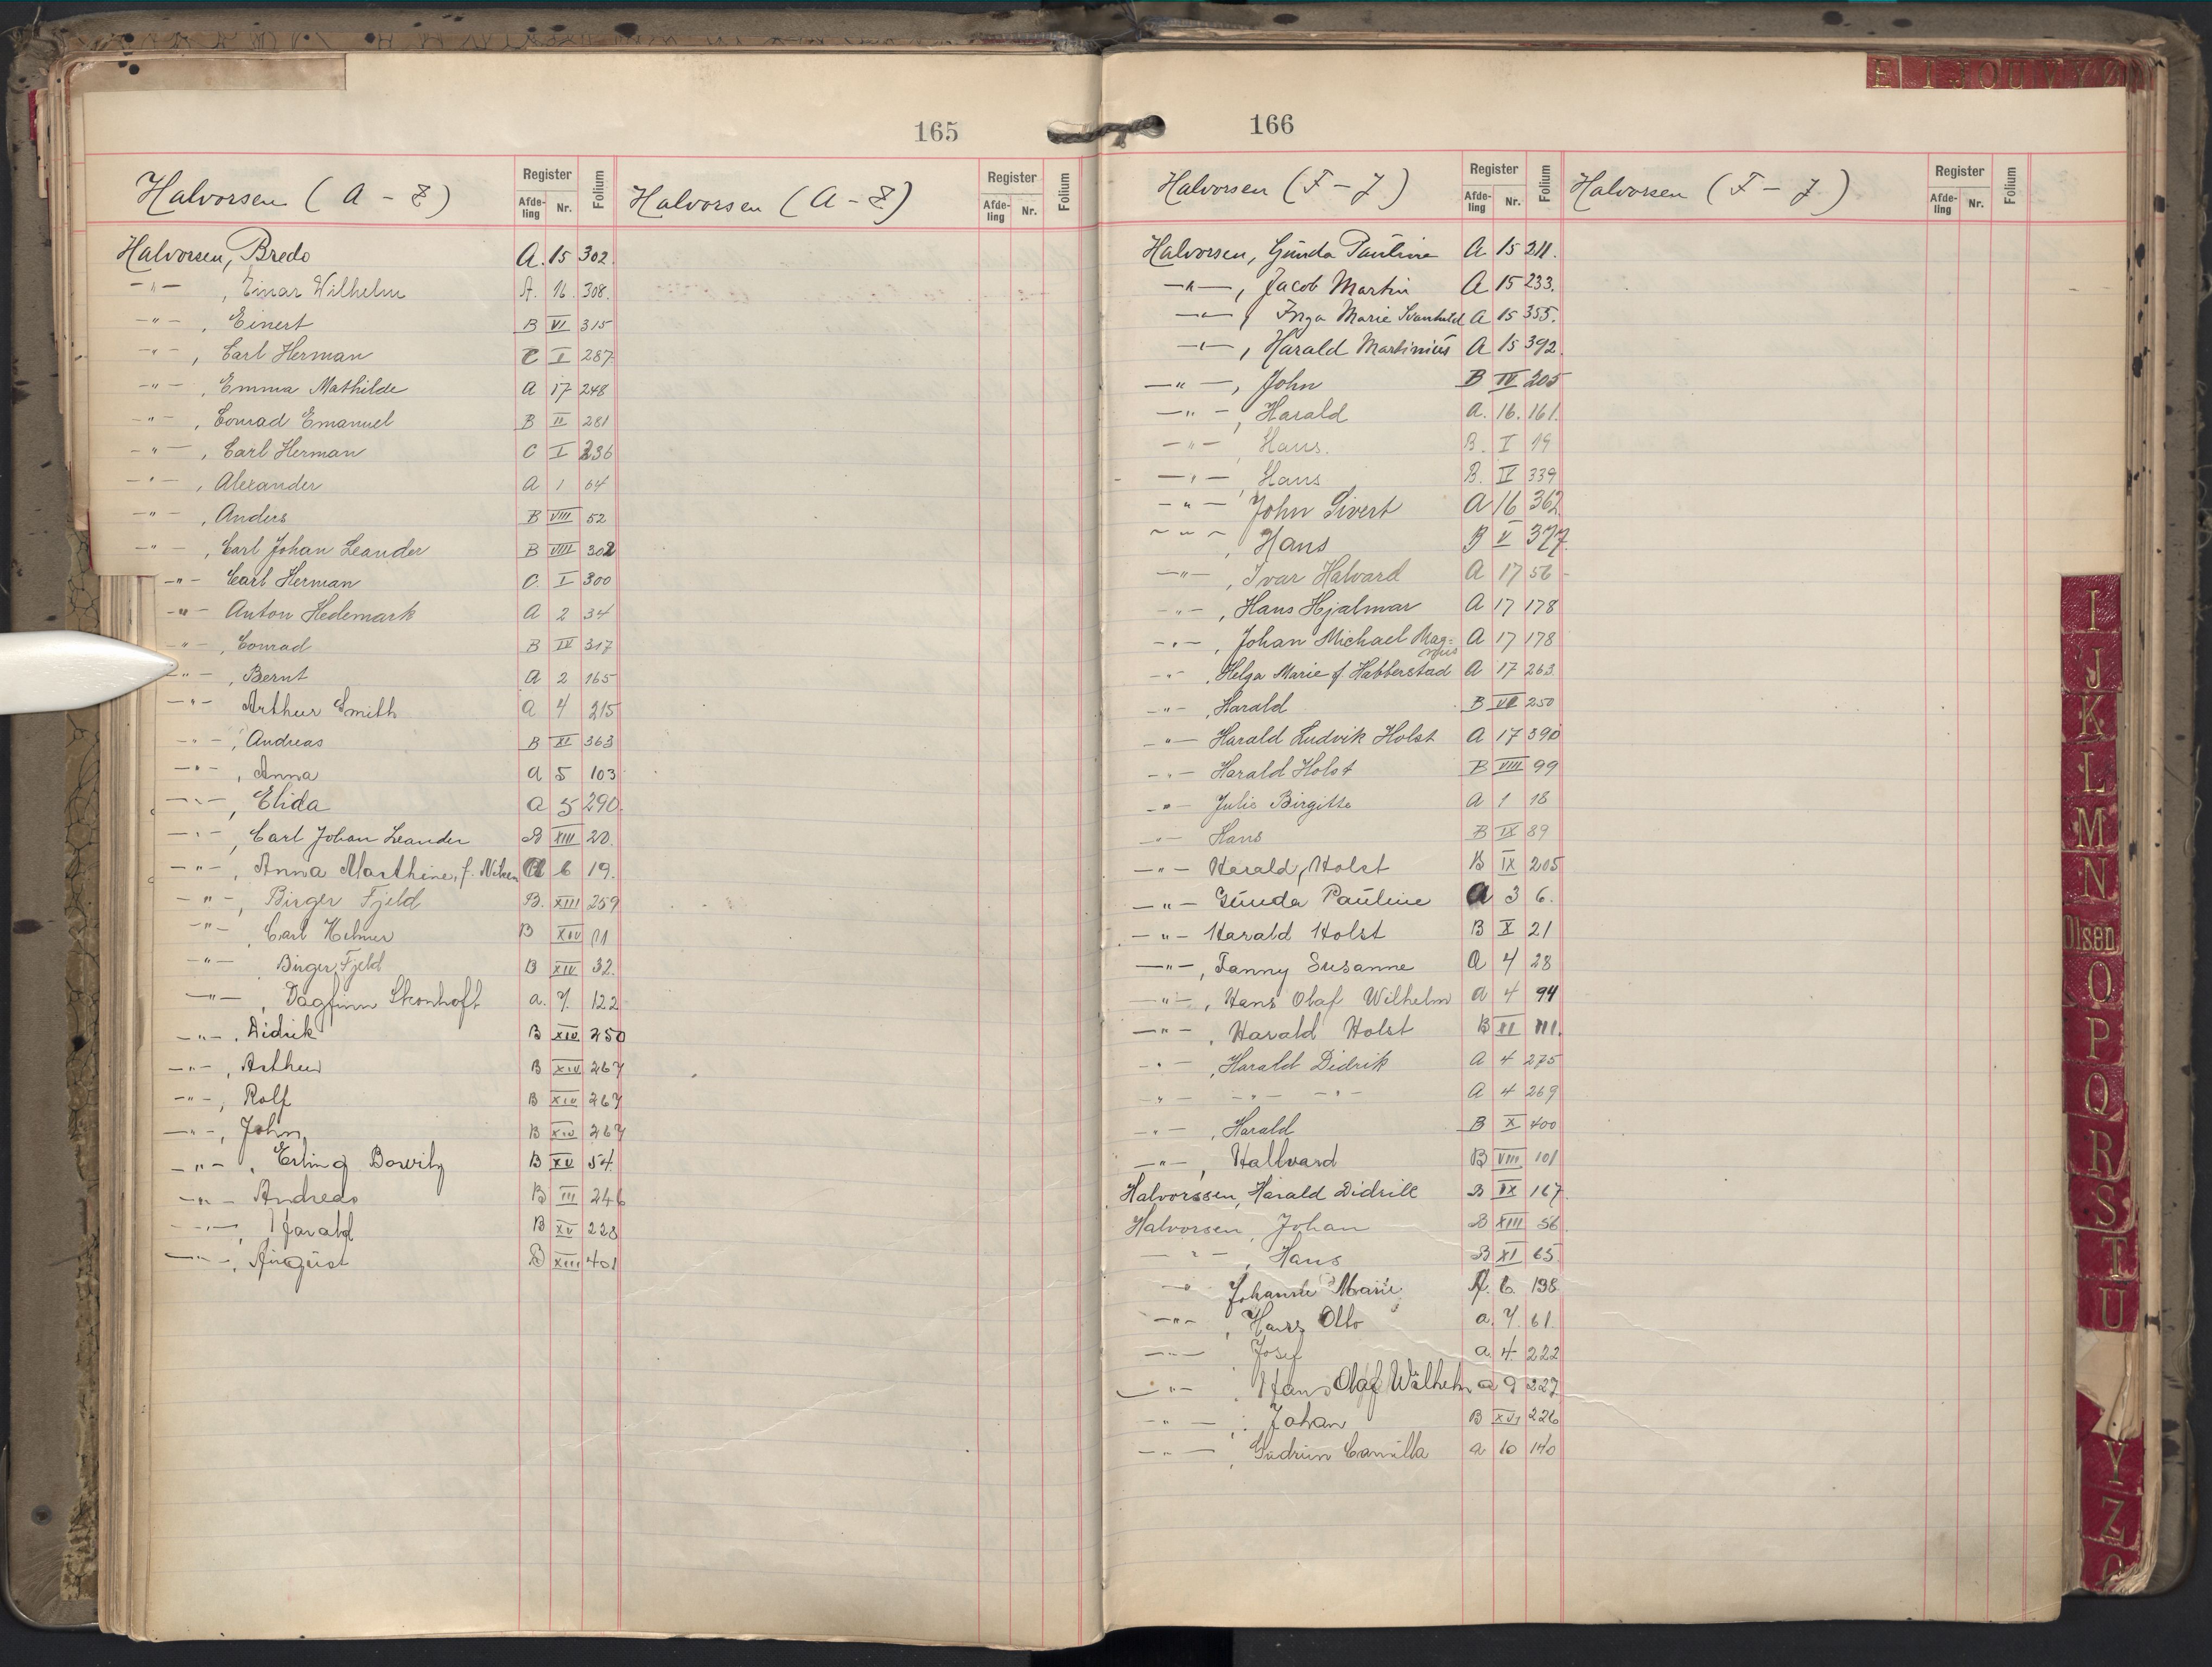 165
Halvorsen (A - E)
Register
Afde-ling Nr. Folium
Halvorsen (A - E)
Register
Afde-ling Nr. Folium
Halvorsen, Bredo A. 15 302
-"- , Einar Wilhelm A. 16. 308.
-"- , Einert B VI 315
-"- , Carl Herman C I 287
-"- , Emma Mathilde A 17 248
-"- , Conrad Emanuel B II 281
-"- , Carl Herman C I 236
-"- , Alexander A 1 64
-"- , Anders B VIII 52
-"- , Carl Johan Leander B VIII 302
-"- Carl Herman C. I 300
-"- Anton Hedemark A 2 34
-"- , Conrad B IV 317
-"- , Bernt A 2 165
-"- Arthur Smith A 4 215
-"- , Andreas B XI 363
-"- , Anna A 5 103
-"- , Elida A 5 290.
-"- , Carl Johan Leander B XIII 20.
-"- , Anna Marthine, f. A 6 19.
-"- , Birger Fjeld B. XIII 259
-"- , Carl Helmer B XIV
-"- Birger Fjeld B XIV 32.
-"- , Dagfinn Skonhoft A. 7. 122
-"- , Didrik B XIV 250
-"- , Arthur B XIV 267
-"- , Rolf B XIV 267
-"- , John B XIV 267
-"- , Erling B XV 54.
-"- Andreas B III 246
-"- , Harald B XV 228
-"- , August B XIII 401
E I J O U V Y
166
Halvorsen (F - J)
Register
Afde-ling Nr. Folium
Halvorsen (F - J)
Register
Afde-ling Nr. Folium
Halvorsen, Gunda Pauline A 15 211.
-"- , Jacob Martin A 15 233.
-"- , Inga Marie Svanhild A 15 355.
-"- , Harald Martinius A 15 392.
-"- , John B IV 205
-"- , Harald A. 16. 161.
-"- , Hans. B. I 19
-"- , Hans B. IV 339
-"- John Sivert A 16 362
-"- , Hans B V 377
-"- , Ivar Halvard A 17 56
-"- , Hans Hjalmar A 17 178
-"- , Johan Michael Mag=nus A 17 178
-"- , Helga Marie f. Habberstad A 17 263.
-"- , Harald B VII 250
-"- Harald Ludvik Holst A 17 390
-"- Harald Holst B VIII 99
-"- Julie Birgitte A 1 18
-"- Hans B IX 89
-"- Harald, Holst B IX 205
-"- Gunda Pauline A 3 6.
-"- Harald Holst B X 21
-"- , Fanny Susanne A 4 28
-"- , Hans Olaf Wilhelm A 4 94
-"- , Harald Holst B XI 111.
-"- , Harald Didrik A 4 275
-"- -"- -"- A 4 269
-"- , Harald B X 400
-"- , Hallvard B VIII 101
Halvorssen, Harald Didrik B IX 167
Halvorsen, Johan B XIII 56
-"- , Hans B XI 65
-"- Johanne Marie A. 6. 198
-"- , Hans Otto A. 7. 61.
-"- Josef A. 4. 222
-"- , Hans Olaf Wilhelm A 9 227
-"- , Johan B XVI 226
-"- , Gudrun Camilla A 10 140
I
J
K
L
M
N
Olsen
O
P
Q
R
S
T
U
Y
Z